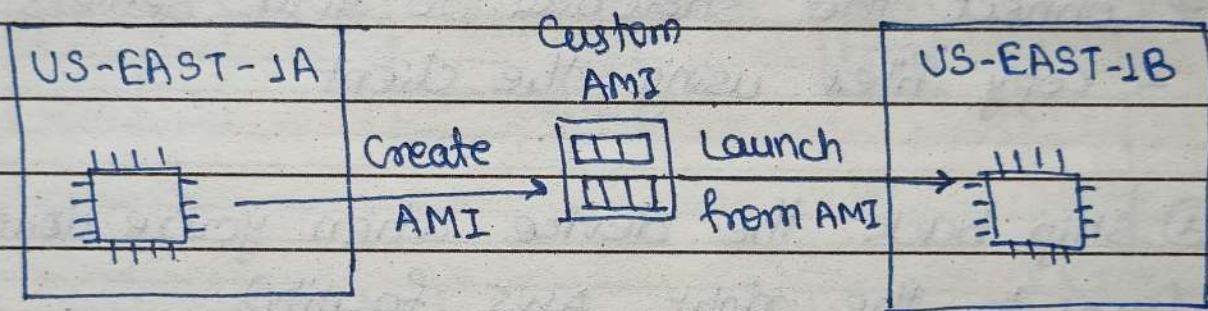 US-EAST-1A
Custom
AMI
US-EAST-1B
Create
AMI
Launch
from AMI